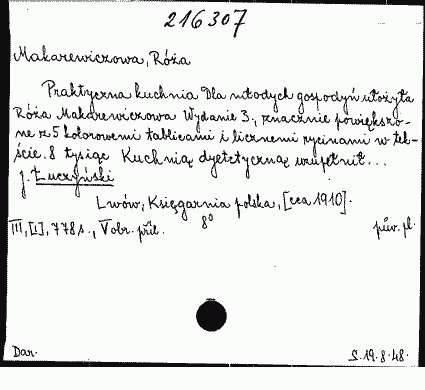 216307
Makarewiczowa, Róża
Praktyczna kuchnia Dla młodych gospodyń ułożyła
Róża Makarewiczowa Wydanie 3., znacznie powiększo-
ne z 5 kolorowemi tablicami i licznemi rycinami w tek-
ście. 8 tysiąc Kuchnią dyetetyczną uzupełnił...
J. Łuczyński
Lwów, Księgarnia polska, [cca 1910].
III, [I], 778 s., V obr. příl. 8° pův. pl.
Dar. S. 19.8.48.